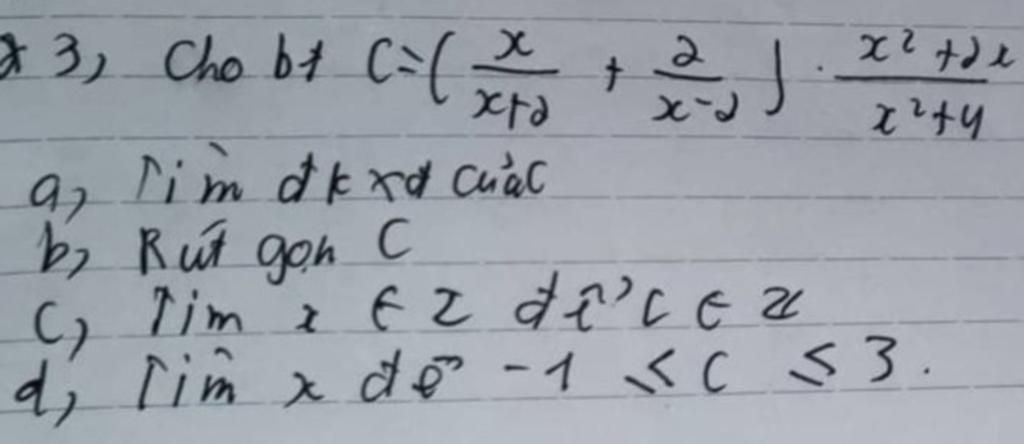 * 3, Cho bt C=(x/(x+2) + 2/(x-2)) . (x²+2x)/(x²+4)
a, Tìm đkxđ của C
b, Rút gọn C
c, Tìm x ∈ Z để C ∈ Z
d, Tìm x để -1 ≤ C ≤ 3.